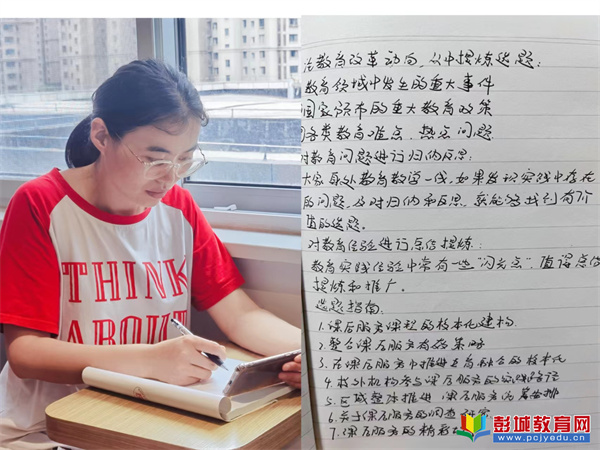 THINK
ABOUT
注教育改革动向，从中提炼选题：
教育领域中发生的重大事件
国家颁布的重大教育政策
各类教育难点、热点问题
对教育问题进行归纳反思：
大家身处教育教学一线，如果发现实践中存在
的问题，及时归纳和反思，就能够找到有价
值的选题。
对教育经验进行总结提炼：
教育实践经验中常有一些"闪光点"，值得总结
提炼和推广。
选题指南：
1.课后服务课程的校本化建构
2.整合课后服务 策略
3.在课后服务中推进五育融合的校本化
4.校外机构参与课后服务的实践路径
5.区域整体推进课后服务
6.关于课后服务的调查研究
7.课后服务的精彩
彭城教育网
www.pcjyedu.cn